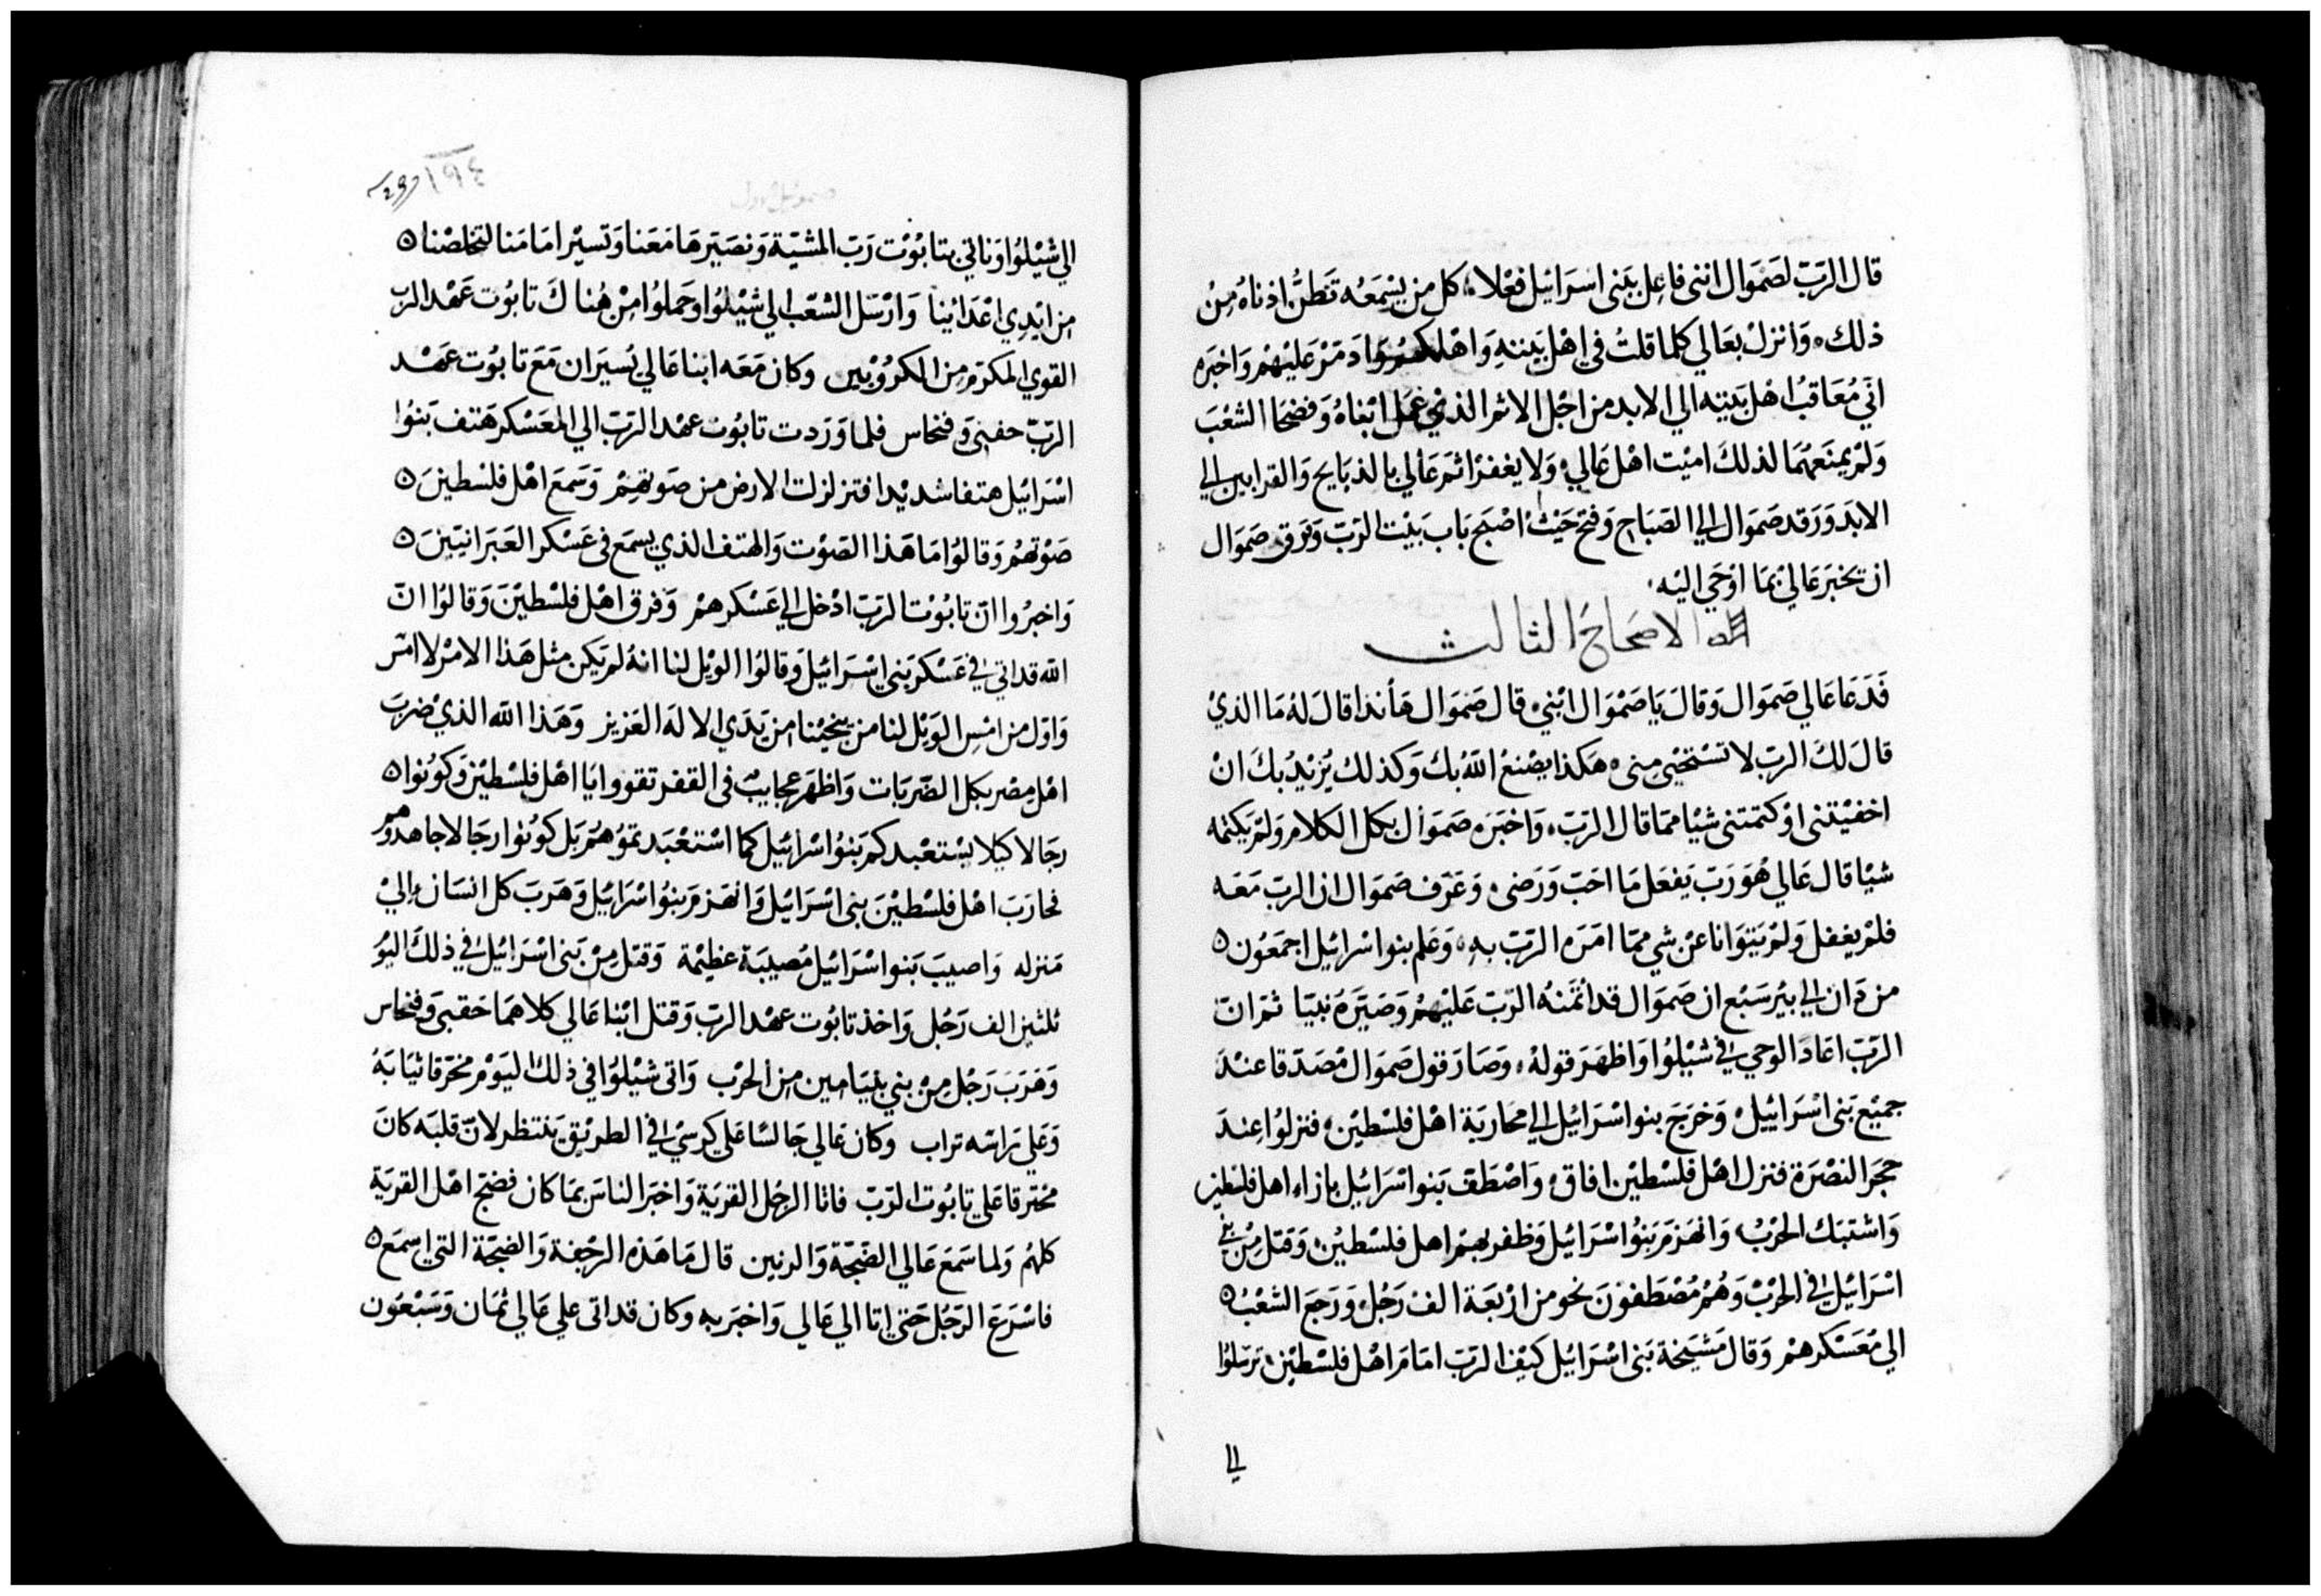 قال الرَبّ لصَمَوَال انني فاعِل ببَني اسرَائيل فعْلا، كل من يسْمَعُه تَطنُّ اذناهُ مِنْ
ذلك، وَانزلْ بعَالي كلما قلتُ في اهْل بَيته وَاهْلكهُم وَادَمّرْ عَليْهمْ وَاخبَره
انّي مُعَاقبُ اهْل بَيته الي الابد من اجْل الاثم الذي عمَل ابْناهُ وَفضحَا الشعْبَ
وَلمْ يمنَعهُمَا لذلكَ اميْت اهْل عَالي، وَلا يغفرْ اثمَ عَالي بالذبَايح وَالقرابين الي
الابدَ وَرَقد صَموَال الي الصَبَاح وَفتحَ حَيْثُ اصْبَح بَابَ بَيْت الرَبّ وَفرق صَموَال
ان يخبرَ عَالي بمَا اوْحَي اليْه،
الاصحَاحُ الثالث
فَدَعَا عَالي صَموَال وَقالَ يَا صَمْوَال ابْني، قال صَموَال هَأنذا قالَ لهُ مَا الذيْ
قالَ لكَ الرَبّ لا تسْتحْيي مِني، هَكذا يصْنعُ اللهُ بكَ وَكذلك يُزيْدُ بكَ انْ
اخفيْتني اوْ كتمتني شيْا ممَا قال الرَبّ، وَاخبَرَه صَموَال بكل الكلام وَلمْ يَكتمه
شيْا قال عَالي هُوَ رَبّ يَفعَل مَا احَبّ وَرَضى، وَعَرَف صَموَال ان الربّ مَعَه
فلمْ يغفل وَلمْ يَتوَانا عَنْ شي ممّا امَرَه الرَبّ به، وَعَلم بنوا اسْرائيل اجمَعُون ٥
من دَان الي بيْر سَبْع ان صَموَال قد ائتمَنهُ الرَبّ عَليْهمْ وَصَيّرَهُ نبيّا ثمّ انّ
الرَبّ اعَادَ الوحي في شيْلوُا وَاظهَرَ قولهُ، وَصَارَ قول صَموَال مُصَدّقا عندَ
جميْع بَني اسْرَائيل، وَخرَجَ بنوا اسْرَائيل الي مَحَاربَة اهْل فلسْطيْن، فنزلوُا عِندَ
حجَر النصْرَة فنزل اهْل فلسْطيْن افاق، وَاصْطَفّ بَنوا اسْرَائيل بازاء اهل فلسطين
وَاشْتبَك الحَرْبُ، وَانهَزمَ بَنوُا اسْرَائيل وَظفر بهمْ اهل فلسْطيْن، وَقتل مِنْ بني
اسْرَائيل في الحَرْب وَهُمْ مُصْطفونَ نحو من ارْبَعَة الف رَجُل، وَرَجَعَ الشعْبُ ٥
الي مُعَسْكرهمْ وَقال مَشيَخة بَني اسْرَائيل كيْف الرَبّ امَامَ اهْل فلسْطيْن، ترسَلوا
الي
١٩٤
صموئيل اول
الي شيْلوُا وَناتي بتابُوْت رَبّ المشيّة وَنصَيّرهَا مَعَنا وَتسيْر امَامَنا لتخلصْنا ٥
مِن ايْدِي اعْدَائينا وَارْسَل الشعْب الي شيْلوُا وحَملوُا مِنْ هُناكَ تابوُت عَهْد الرب
القوي المكرّم مِن الكرُوْبيْن وكان مَعَه ابنا عَالي يُسيَران مَعَ تابوُت عَهْد
الرَبّ حفني وَفنحاس فلما وَرَدت تابوُت عهْد الرَبّ الي المعَسْكر هَتف بَنوُا
اسْرَائيل هتفا شديْدا فتزلزلت الارض من صَوتهمْ وَسَمعَ اهْل فلسْطينَ ٥
صَوْتهُمْ وَقالوُا مَا هَذا الصَوْت وَالهتف الذي يسمَع في عَسْكر العَبرَانيّينَ ٥
وَاخبرُوا انّ تابُوْت الرَبّ ادْخل الي عَسْكرهمْ وَفرق اهْل فلسْطيْنَ وَقالوُا انّ
الله قد اتي في عَسْكر بَني اسْرَائيل وَقالوُا الويْل لنا انهُ لم يَكن مثل هَذا الامْر لا امْس
وَاوّل من امْسِ الوَيْل لنا من ينجيْنا من يَدَي الالهَ العَزيز وَهَذا الله الذيْ ضربَ
اهْل مِصْر بكل الضَربَات وَاظهَرَ عجايبْ في القفر تقووا يَا اهْل فلسْطيْن وَكوُنوا ٥
رجَالا كيلا يسْتعْبدكم بَنوُ اسْرائيل كما اسْتعْبَدتموُهُم بَل كوُنوا رجَالا جاهدوُهم
فحارَبَ اهْل فلسْطيْنَ بني اسْرَائيل وَانهَزمَ بنوُا اسْرَائيل وَهَرَبَ كل انسَان اليْ
مَنزله وَاصيبَ بَنوا اسْرَائيل مُصيْبَة عظيْمة وَقتل مِنْ بَني اسْرَائيل في ذلكَ اليوُ
ثلثين الف رَجُل وَاخذ تابوُت عهْد الربّ وَقتل ابْنا عَالي كلاهمَا حَفني وَفنحاس
وَهَرَبَ رَجُل مِنْ بني بنيَامين مِن الحَرْب وَاتى شيْلوُا في ذلك اليَوْم مخرّقا ثيَابَهُ
وَعَلي رَاسه تراب وكان عَالي جَالسًا عَلي كرسيْ في الطريْق يَنتظر لانّ قلبَه كانَ
مُحْترقا عَلي تابوُت الرَبّ فاتا الرجُل القريَة وَاخبَر الناسَ بمَا كان فضجّ اهْل القريَة
كلهُمْ وَلما سَمعَ عَالي الضَجّة وَالرنين قال مَا هَذه الرجْفة وَالضجّة التي اسمَع ٥
فاسْرَعَ الرَجُل حَتي اتا الي عَالي وَاخبَر به وكان قد اتى علي عَالي ثمَان وَسَبْعُون